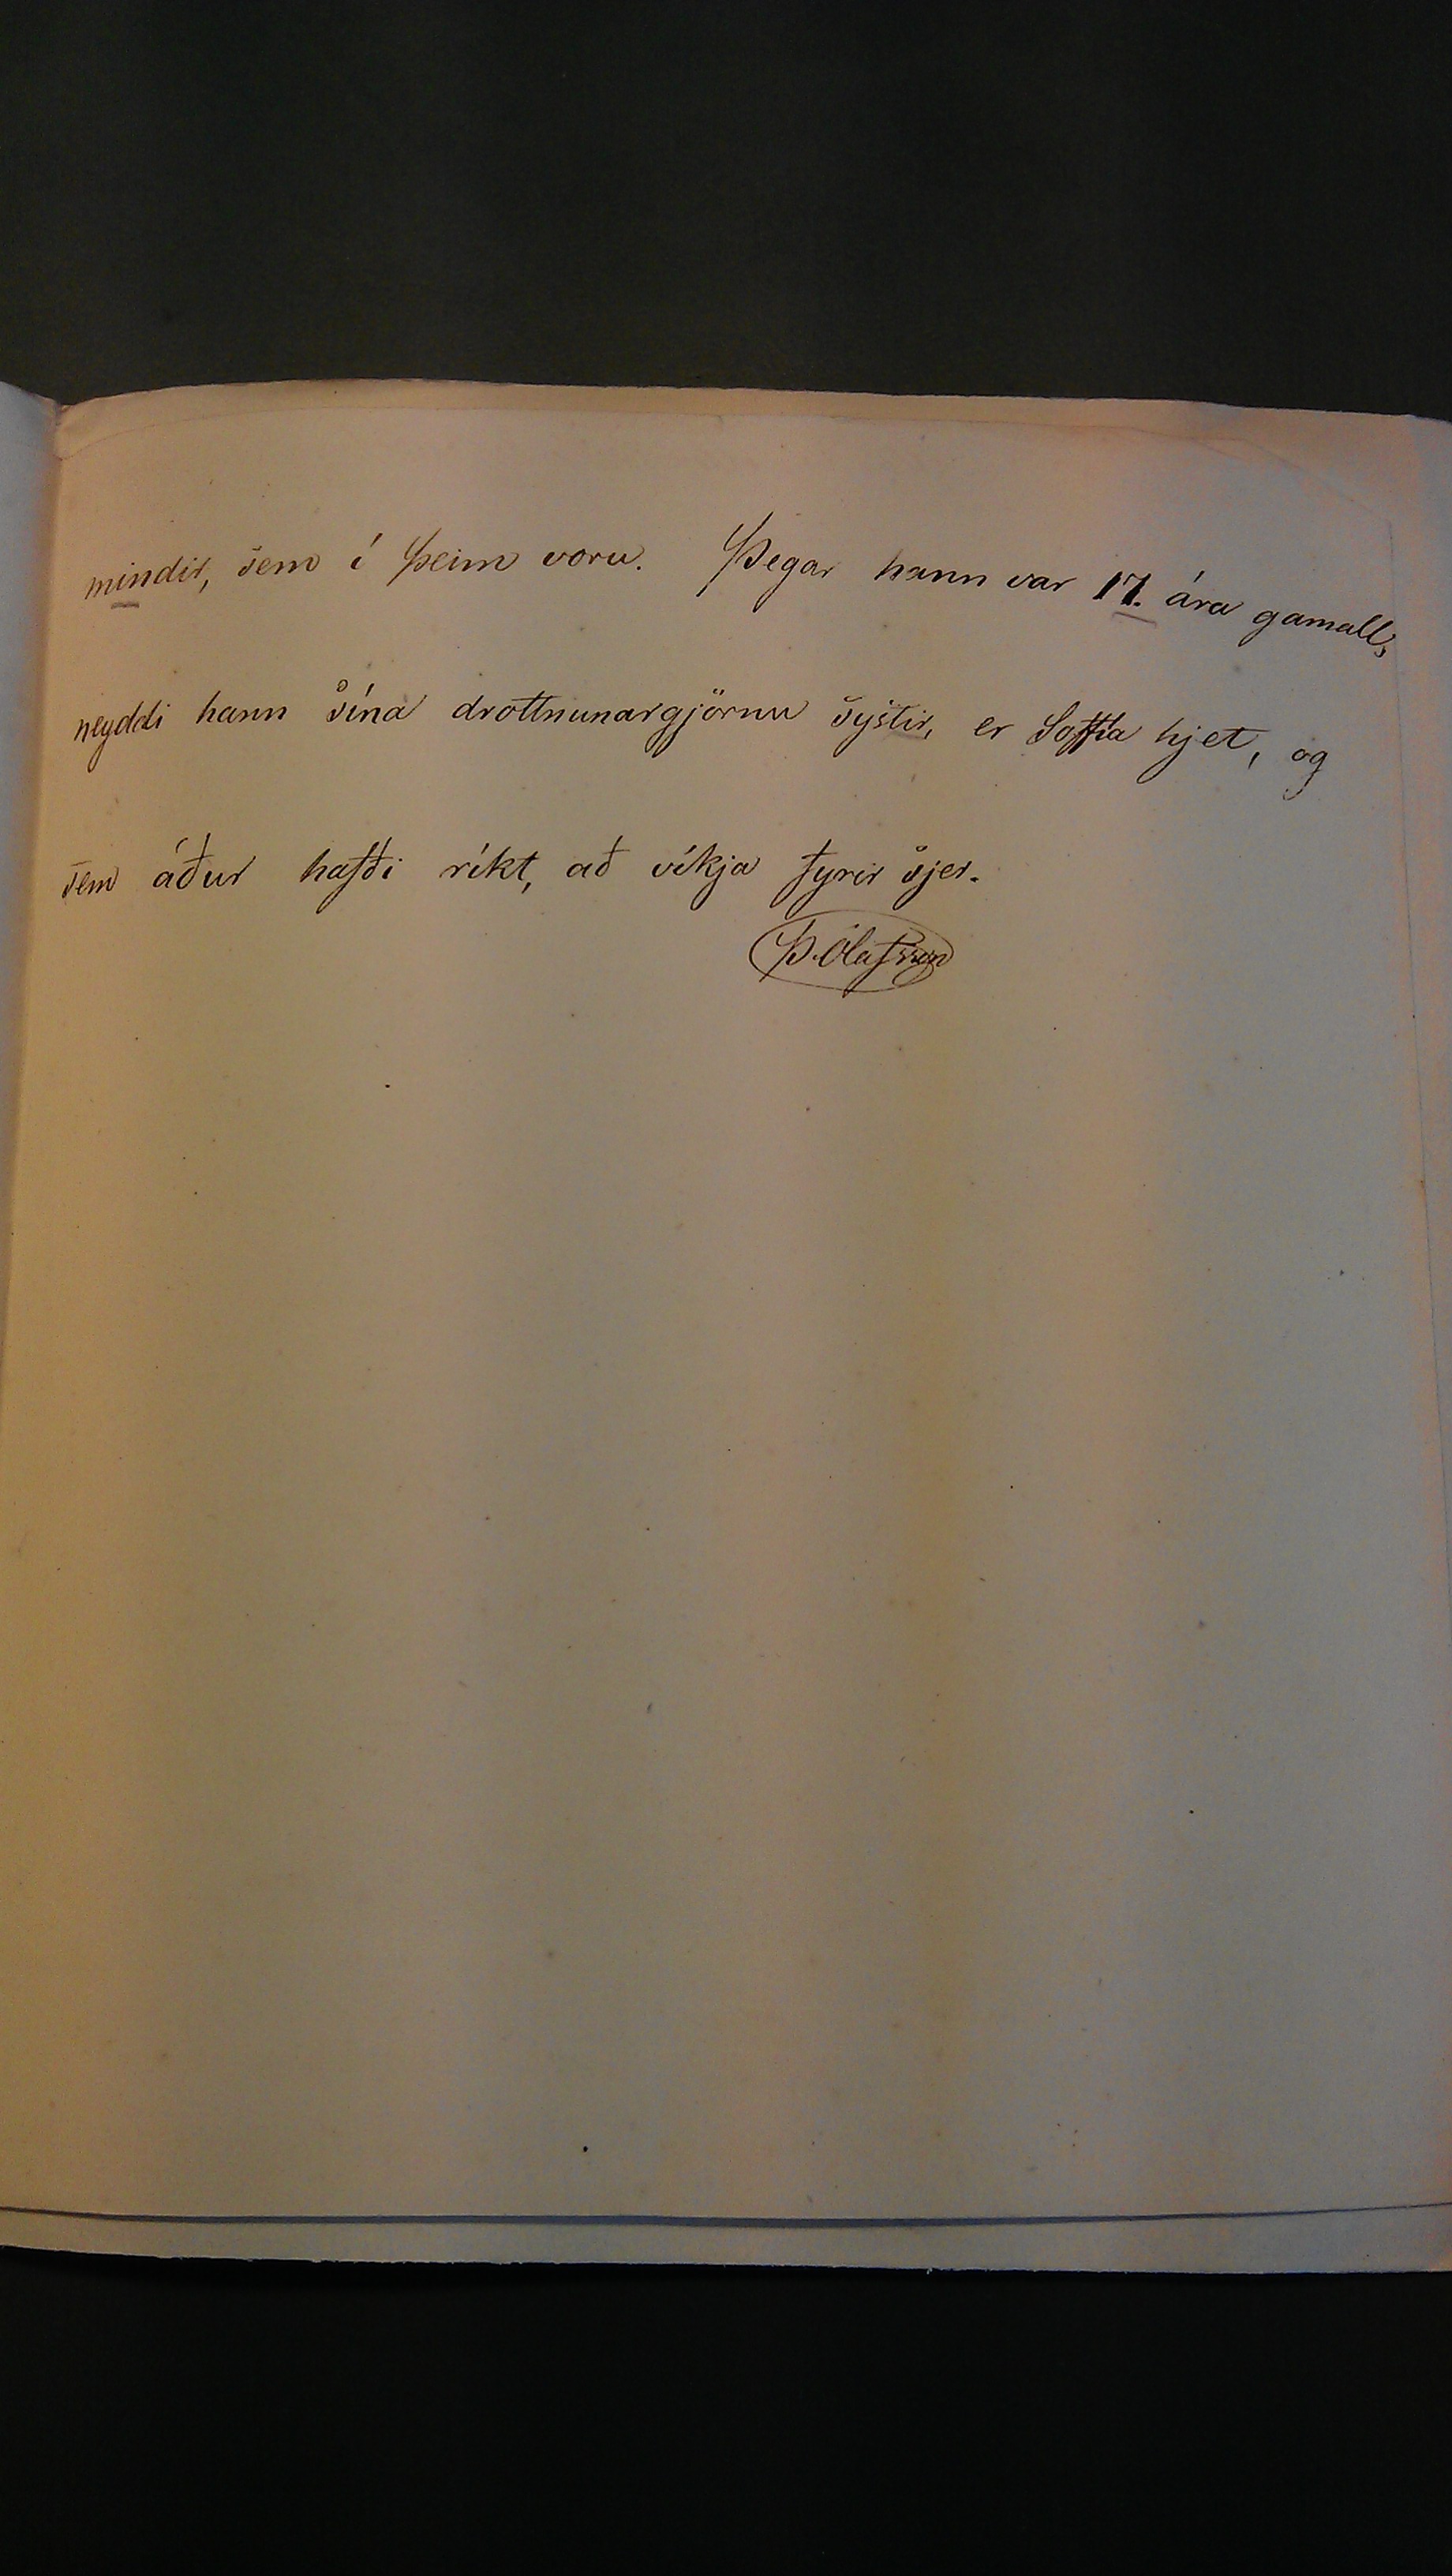 mindir, sem í þeim voru. Þegar hann var 17. ára gamall,
neyddi hann sína drottnunargjörnu systir, er Soffía hjet, og
sem áður hafði ríkt, að víkja fyrir sjer.
Þ. Ólafsson